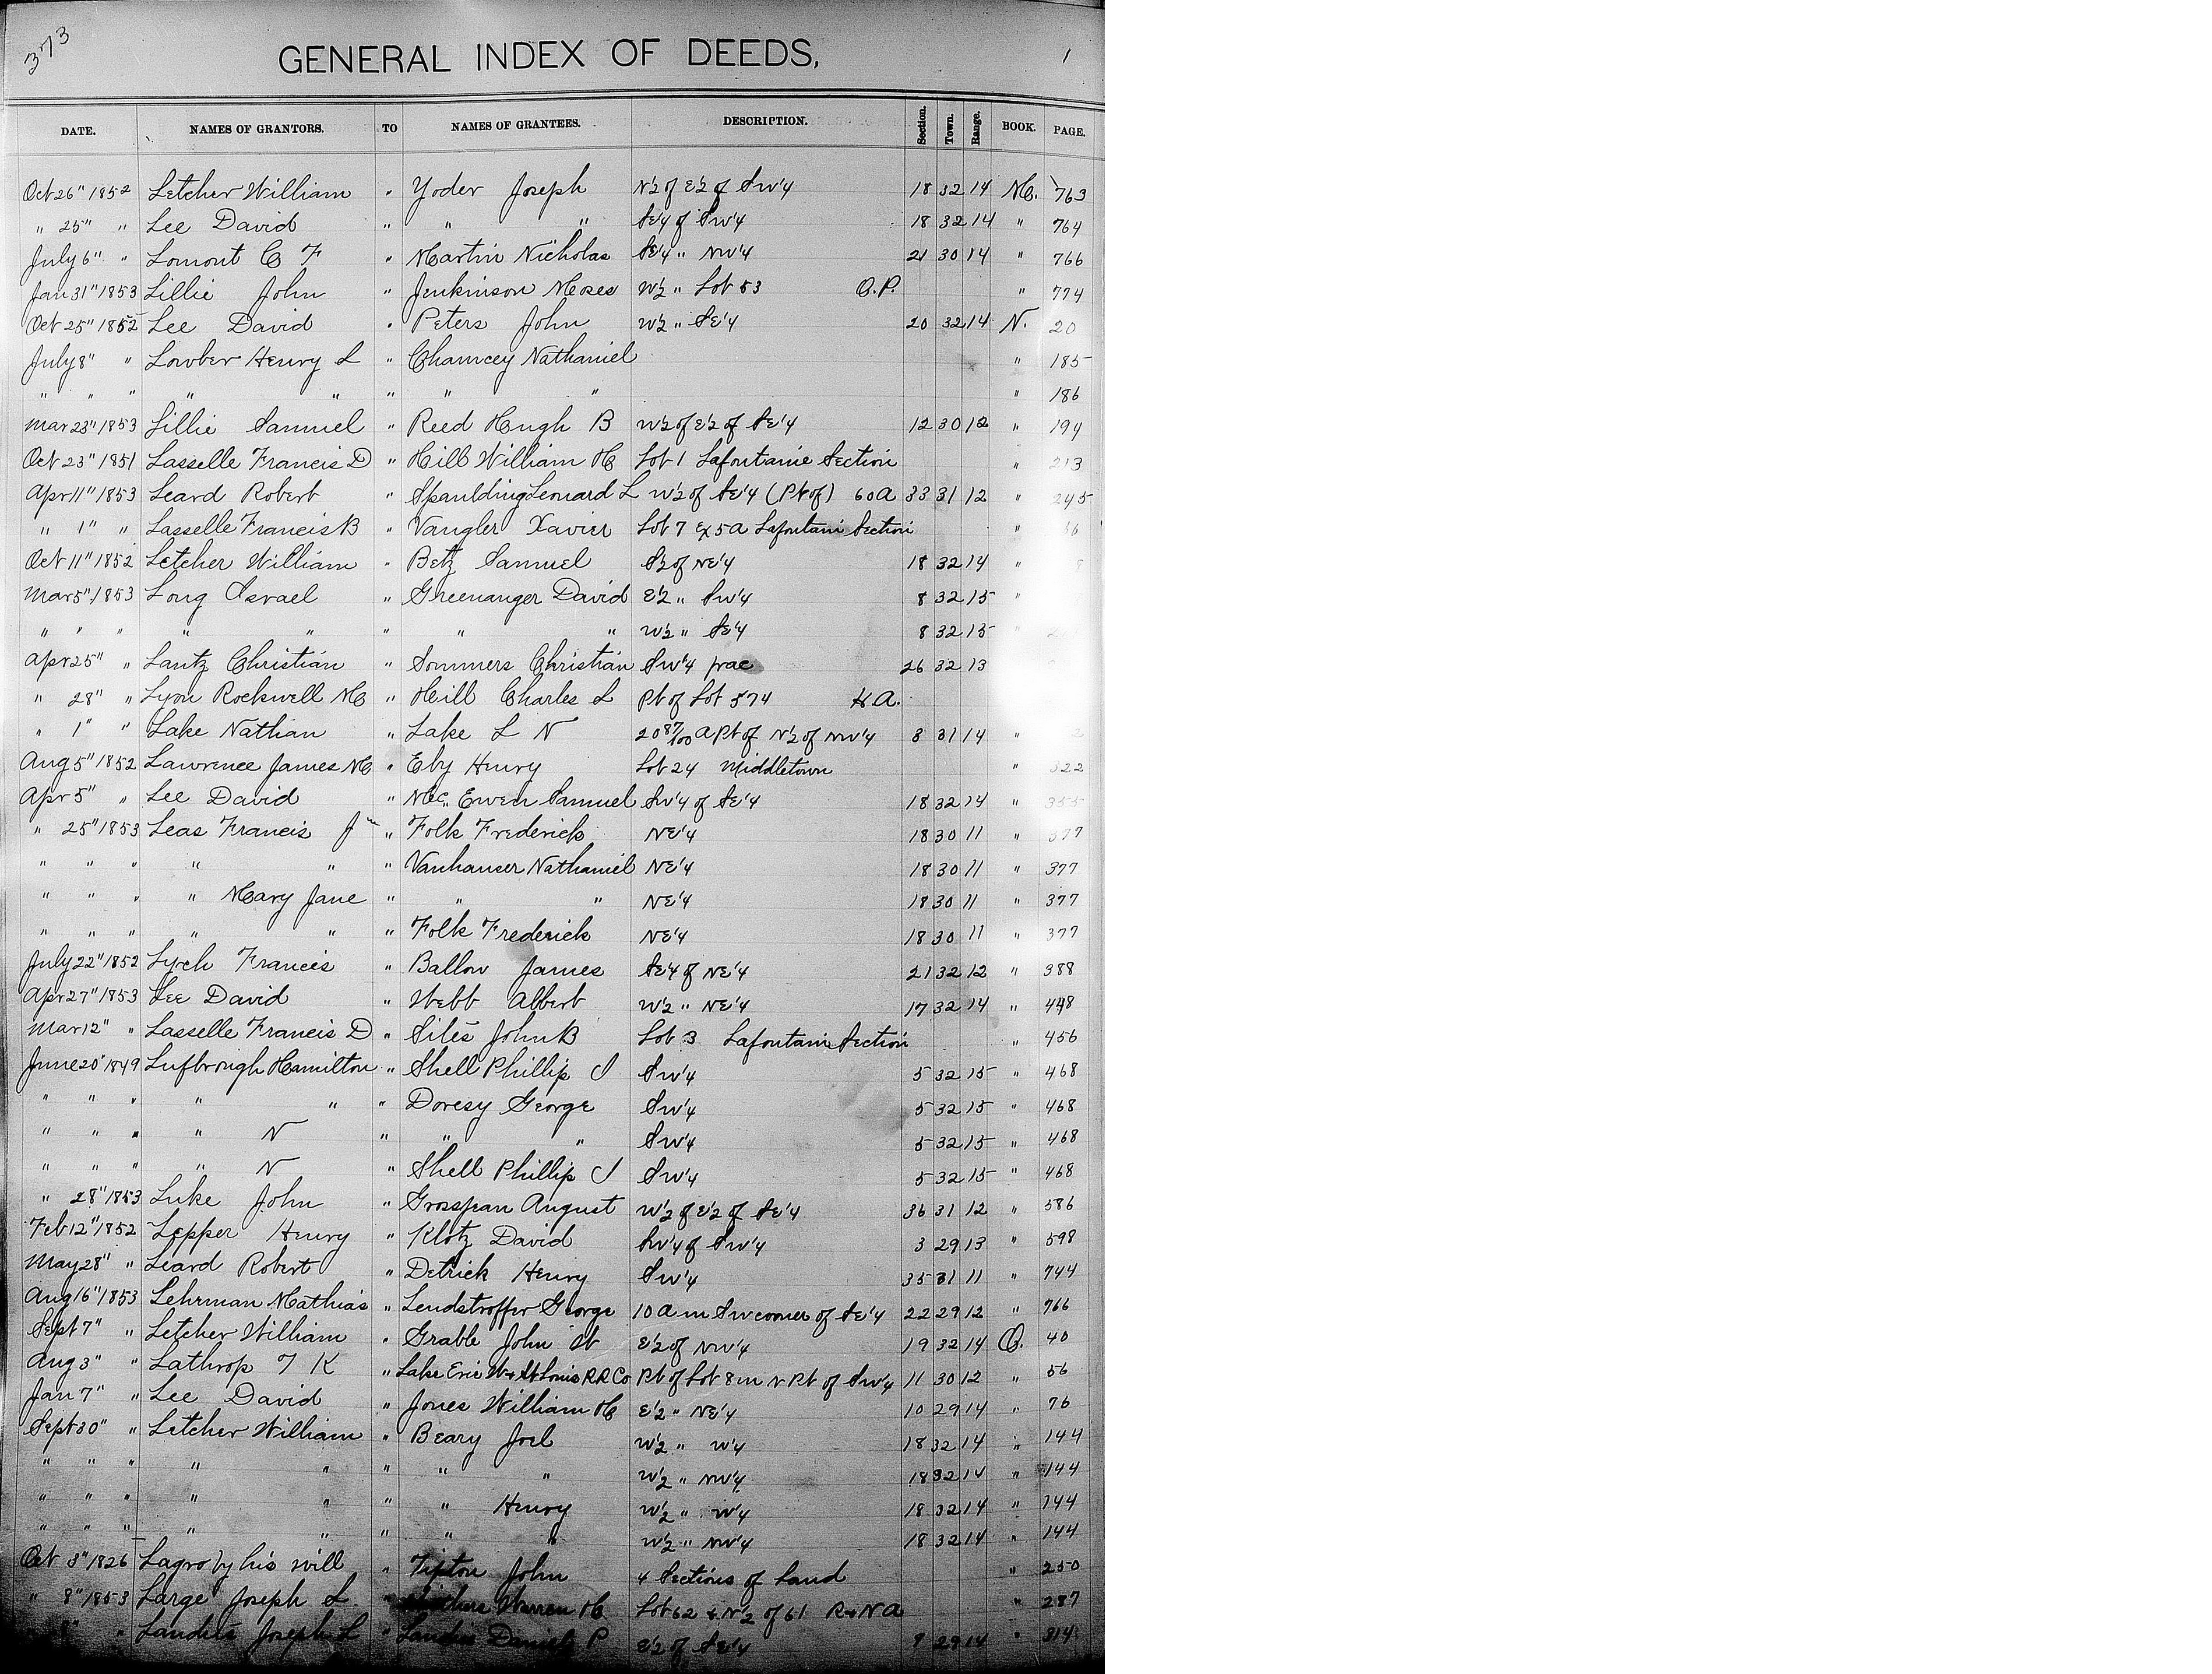 373
GENERAL INDEX OF DEEDS,
1
DATE. NAMES OF GRANTORS. TO NAMES OF GRANTEES. DESCRIPTION. Section. Town. Range. BOOK. PAGE.
Oct 26" 1852 Letcher William " Yoder Joseph N½ of E½ of SW¼ 18 32 14 M. 763
" 25" " Lee David " " " SE¼ of SW¼ 18 32 14 " 764
July 6" " Lomont C F " Martin Nicholas SE¼ " NW¼ 21 30 14 " 766
Jan 31" 1853 Lillie John " Jenkinson Moses W½ " Lot 53 O.P. " 774
Oct 25" 1852 Lee David " Peters John W½ " SE¼ 20 32 14 N. 20
July 8" " Lowber Henry L " Chauncey Nathaniel " 185
" " " " " " " " " 186
Mar 23" 1853 Lillie Samuel " Reed Hugh B W½ of E½ of SE¼ 12 30 12 " 194
Oct 23" 1851 Lasselle Francis D " Hill William H Lot 1 Lafontaine Section " 213
Apr 11" 1853 Leard Robert " Spaulding Leonard L W½ of SE¼ (Pt of) 60 A 33 31 12 " 245
" 1" " Lasselle Francis B " Vangler Xavier Lot 7 Ex 5 A Lafontain Section "
Oct 11" 1852 Letcher William " Betz Samuel S½ of NE¼ 18 32 14 "
Mar 5" 1853 Long Israel " Greenanger David E½ " SW¼ 8 32 15 "
" " " " " " " " W½ " SE¼ 8 32 15 "
Apr 25" " Lantz Christian " Sommers Christian SW¼ frac 26 32 13
" 28" " Lyon Rockwell M " Hill Charles L Pt of Lot 574 H.A.
" 1" " Lake Nathan " Lake L N 20 87/100 A Pt of N½ of NW¼ 8 31 14 "
Aug 5" 1852 Lawrence James M " Eby Henry Lot 24 Middletown " 322
Apr 5" " Lee David " Mc Ewen Samuel SW¼ of SE¼ 18 32 14 " 355
" 25" 1853 Leas Francis J " Folk Frederick NE¼ 18 30 11 " 377
" " " " " " Vanhauser Nathaniel NE¼ 18 30 11 " 377
" " " " Mary Jane " " " NE¼ 18 30 11 " 377
" " " " " " Folk Frederick NE¼ 18 30 11 " 377
July 22" 1852 Lych Francis " Ballow James SE¼ of NE¼ 21 32 12 " 388
Apr 27" 1853 Lee David " Webb Albert W½ " NE¼ 17 32 14 " 448
Mar 12" " Lasselle Francis D " Siles John B Lot 3 Lafontain Section " 456
June 20" 1849 Lufbrough Hamilton " Shell Phillip J SW¼ 5 32 15 " 468
" " " " " " Doresy George SW¼ 5 32 15 " 468
" " " " N " " " SW¼ 5 32 15 " 468
" " " " N " Shell Phillip J SW¼ 5 32 15 " 468
" 28" 1853 Luke John " Grossjean August W½ of E½ of SE¼ 36 31 12 " 586
Feb 12" 1852 Lepper Henry " Klotz David SW¼ of SW¼ 3 29 13 " 598
May 28" " Leard Robert " Detrick Henry SW¼ 35 31 11 " 744
Aug 16" 1853 Lehrman Mathias " Lendstroffer George 10 A in SW corner of SE¼ 22 29 12 " 766
Sept 7" " Letcher William " Grable John W E½ of NW¼ 19 32 14 O. 40
Aug 3" " Lathrop T K " Lake Erie W & St Louis R R Co Pt of Lot 8 in N Pt of SW¼ 11 30 12 " 56
Jan 7" " Lee David " Jones William H E½ " NE¼ 10 29 14 " 76
Sept 30" " Letcher William " Beary Joel W½ " W¼ 18 32 14 " 144
" " " " " " " " W½ " NW¼ 18 32 14 " 144
" " " " " " " Henry W½ " W¼ 18 32 14 " 144
" " " " " " " " W½ " NW¼ 18 32 14 " 144
Oct 3" 1826 Lagro by his will " Tipton John 4 Sections of Land " 250
" 8" 1853 Large Joseph L " Warren H Lot 62 & N½ of 61 R & N A " 287
" Landis Joseph L " Landis Daniel P E½ of SE¼ 9 29 14 " 314